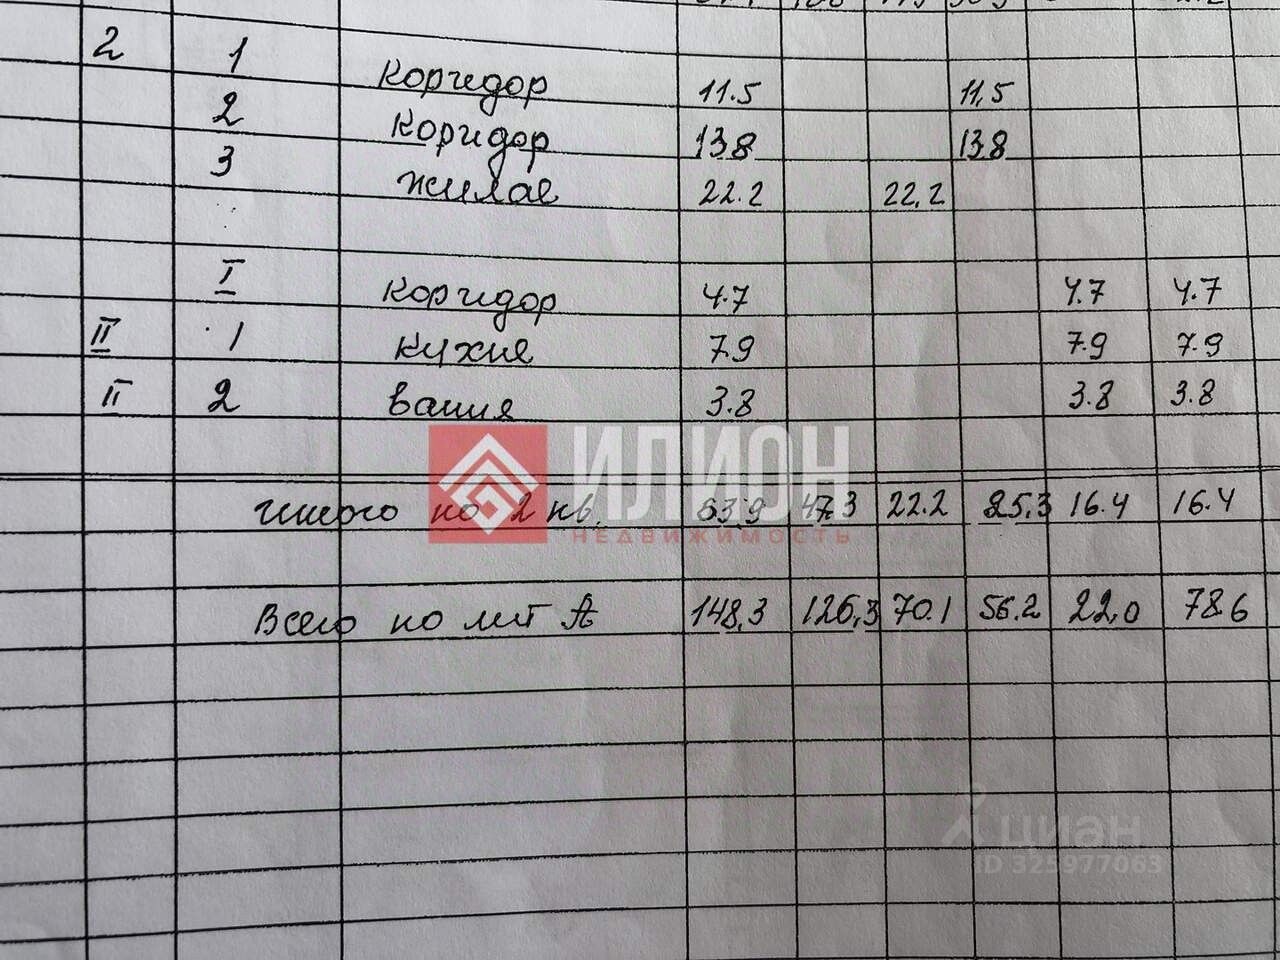 2 1 коридор 11.5 11,5
2 коридор 13.8 13.8
3 жилая 22.2 22,2
I коридор 4.7 4.7 4.7
II 1 кухня 7.9 7.9 7.9
II 2 ванная 3.8 3.8 3.8
ИЛИОН
НЕДВИЖИМОСТЬ
итого по 2 кв. 63,9 47.3 22.2 25.3 16.4 16.4
Всего по лит А 148,3 126,3 70.1 56.2 22,0 78.6
циан
ID 325977063